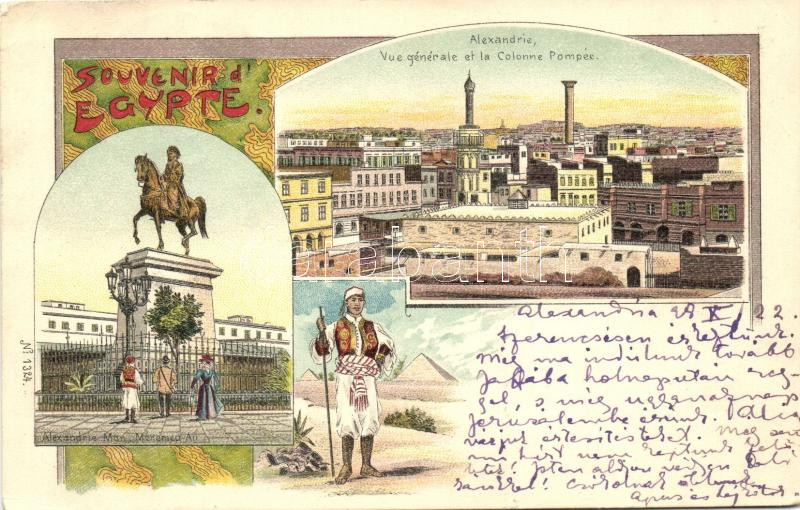 SOUVENIR d'
EGYPTE.
Alexandrie,
Vue générale et la Colonne Pompée.
Alexandrie Mon. Mehemed-Ali
No. 1324.
darabanth
Alexandria 28 X 22
Szerencsésen érkeztünk.
Még ma indulunk tovább
Jaffába holnapután reg-
gel s még ugyanaznap
Jeruzsálembe érünk.
értesítéseket. Még
hírt nem kaptunk
Isten áldjon
Csókolnak